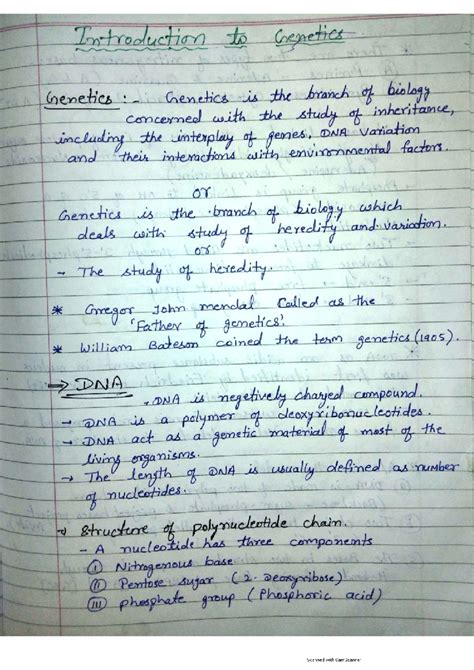 Introduction to Genetics
Genetics :- Genetics is the branch of biology
concerned with the study of inheritance,
including the interplay of genes, DNA variation
and their interactions with environmental factors.
or
Genetics is the branch of biology which
deals with study of heredity and variation.
or
- The study of heredity.
* Gregor John mendal Called as the
'Father of genetics'.
* William Bateson coined the term genetics (1905).
→ DNA
. DNA is negetively charged compound.
→ DNA is a polymer of deoxyribonucleotides.
→ DNA act as a genetic material of most of the
living organisms.
→ The length of DNA is usually defined as number
of nucleotides.
→ Structure of polynucleotide chain.
- A nucleotide has three components
(I) Nitrogenous base
(II) Pentose sugar (2-Deoxyribose)
(III) phosphate group (Phosphoric acid)
Scanned with CamScanner